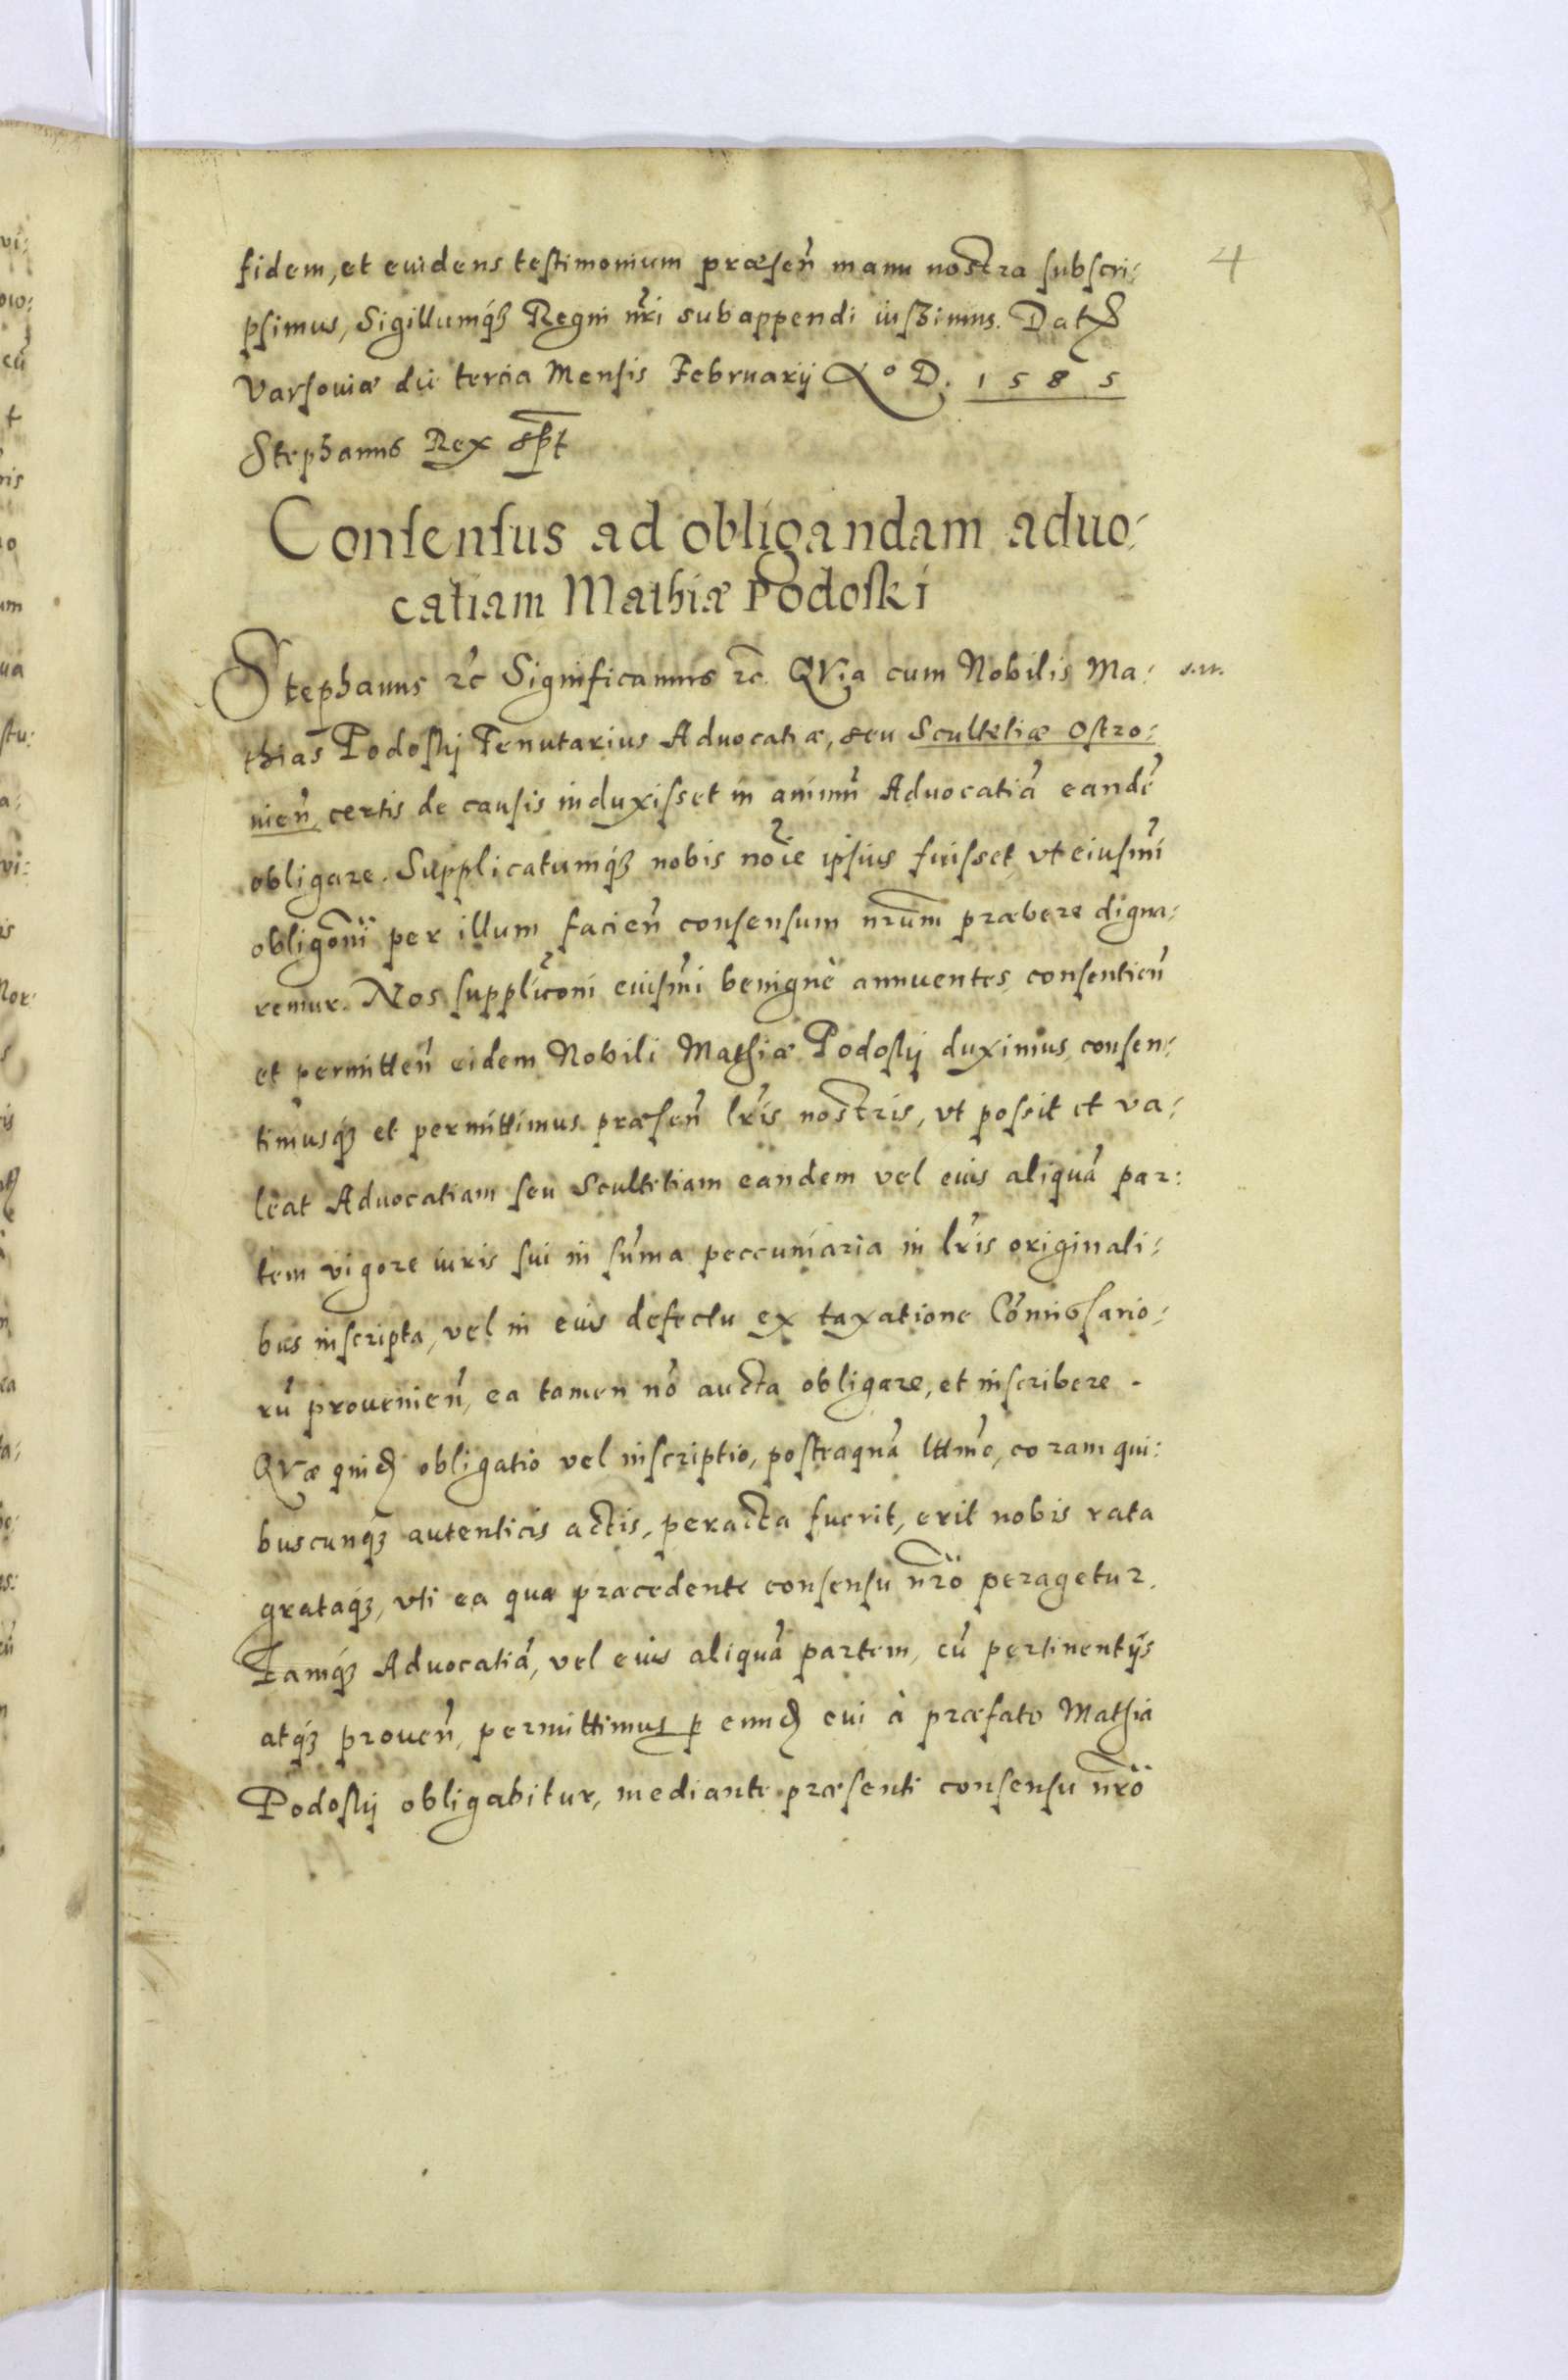 4
fidem, et euidens testimonium præsen̄ manu nostra subscri:
psimus, Sigillumq́ꝫ Regni nr̄i subappendi iussimus. Dat
Varsouiæ die tercia Mensis Februarij Aº D. 1585
Stephanus Rex sp̄t
Consensus ad obligandam aduo:
catiam Mathiæ Podoski
Stephanus ꝛc̄ Significamus ꝛc̄. QVia cum Nobilis Ma:
thias Podoskj Tenutarius Aduocatiæ, seu Scultetiæ Ostro:
uien̄ certis de causis induxisset in animū Aduocatiā eandē
obligare. Supplicatumq́ꝫ nobis noīe ipsius fuisset, vt eiusm̄i
obligōni per illum facien̄ consensum nr̄um præbere digna:
remur. Nos supplicōni eiusm̄i benignè annuentes, consentien̄
et permitten̄ eidem Nobili Mathiæ Podoskj duximus, consen:
timusq́ꝫ et permittimus præsen̄ lr̄is nostris, vt possit et va:
leat Aduocatiam seu Scultetiam eandem vel eius aliquā par:
tem vigore iuris sui in sūma peccuniaria in lr̄is originali:
bus inscripta, vel in eius defectu ex taxatione Cōmissario:
rū prouenien̄, ea tamen nō aucta obligare, et inscribere.
QVæ quidē obligatio vel inscriptio, posteaquā lttm̄e, coram qui:
buscunqꝫ autenticis actis, peracta fuerit, erit nobis rata
grataq́ꝫ, vti ea quæ præcedente consensu nr̄o peragetur.
Eamq́ꝫ Aduocatiā, vel eius aliquā partem, cū pertinentijs
atq́ꝫ prouen̄, permittimus ꝑ eundē cui à præfato Mathia
Podoskj obligabitur, mediante præsenti consensu nr̄o